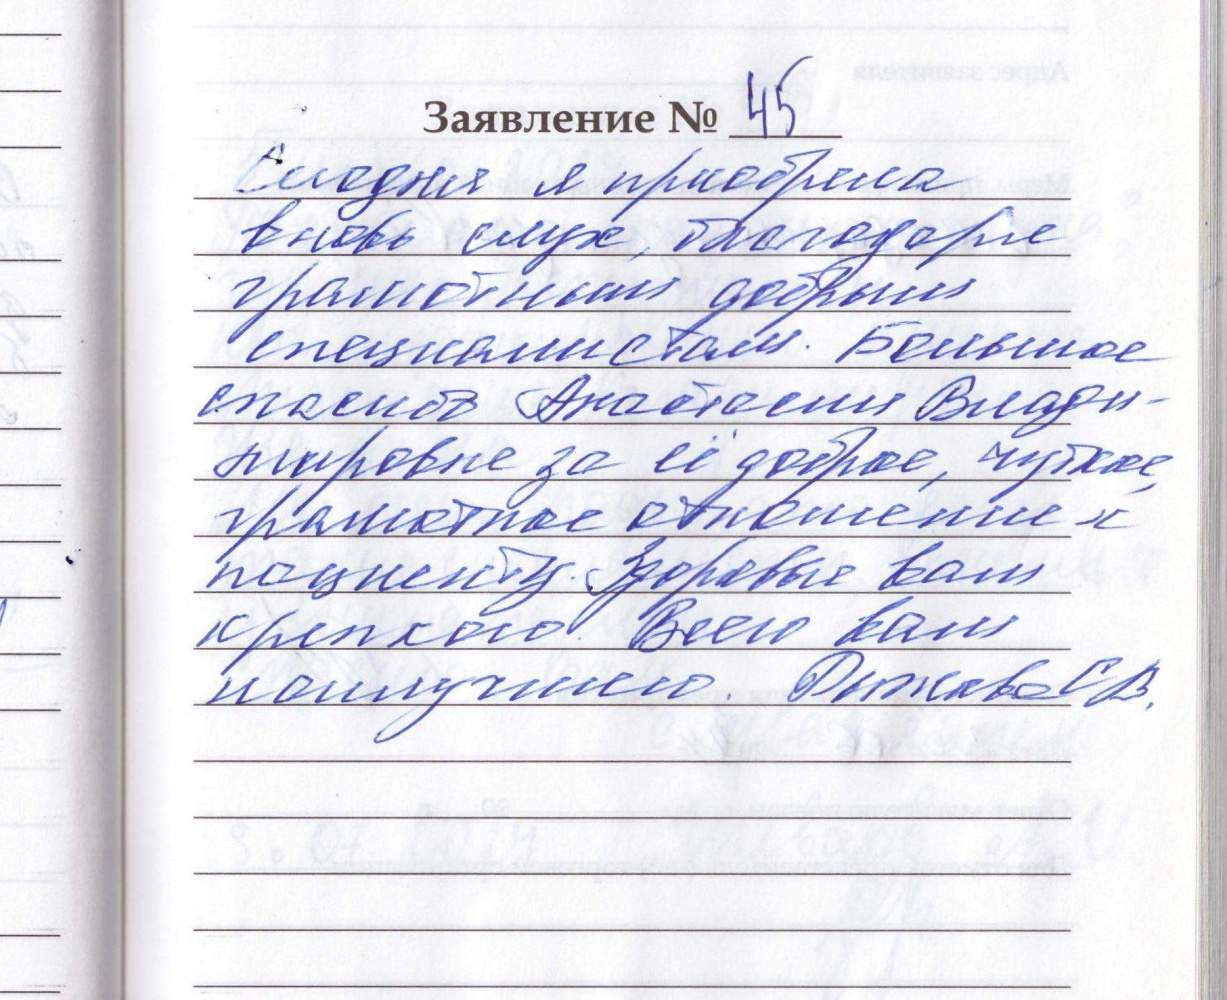 Заявление № 45
Сегодня я приобрела
вновь слух, благодаря
грамотным добрым
специалистам. Большое
спасибо Анастасии Влади-
мировне за её доброе, чуткое,
грамотное отношение к
пациенту. Здоровье вам
крепкого. Всего вам
наилучшего. Рыжова С В.